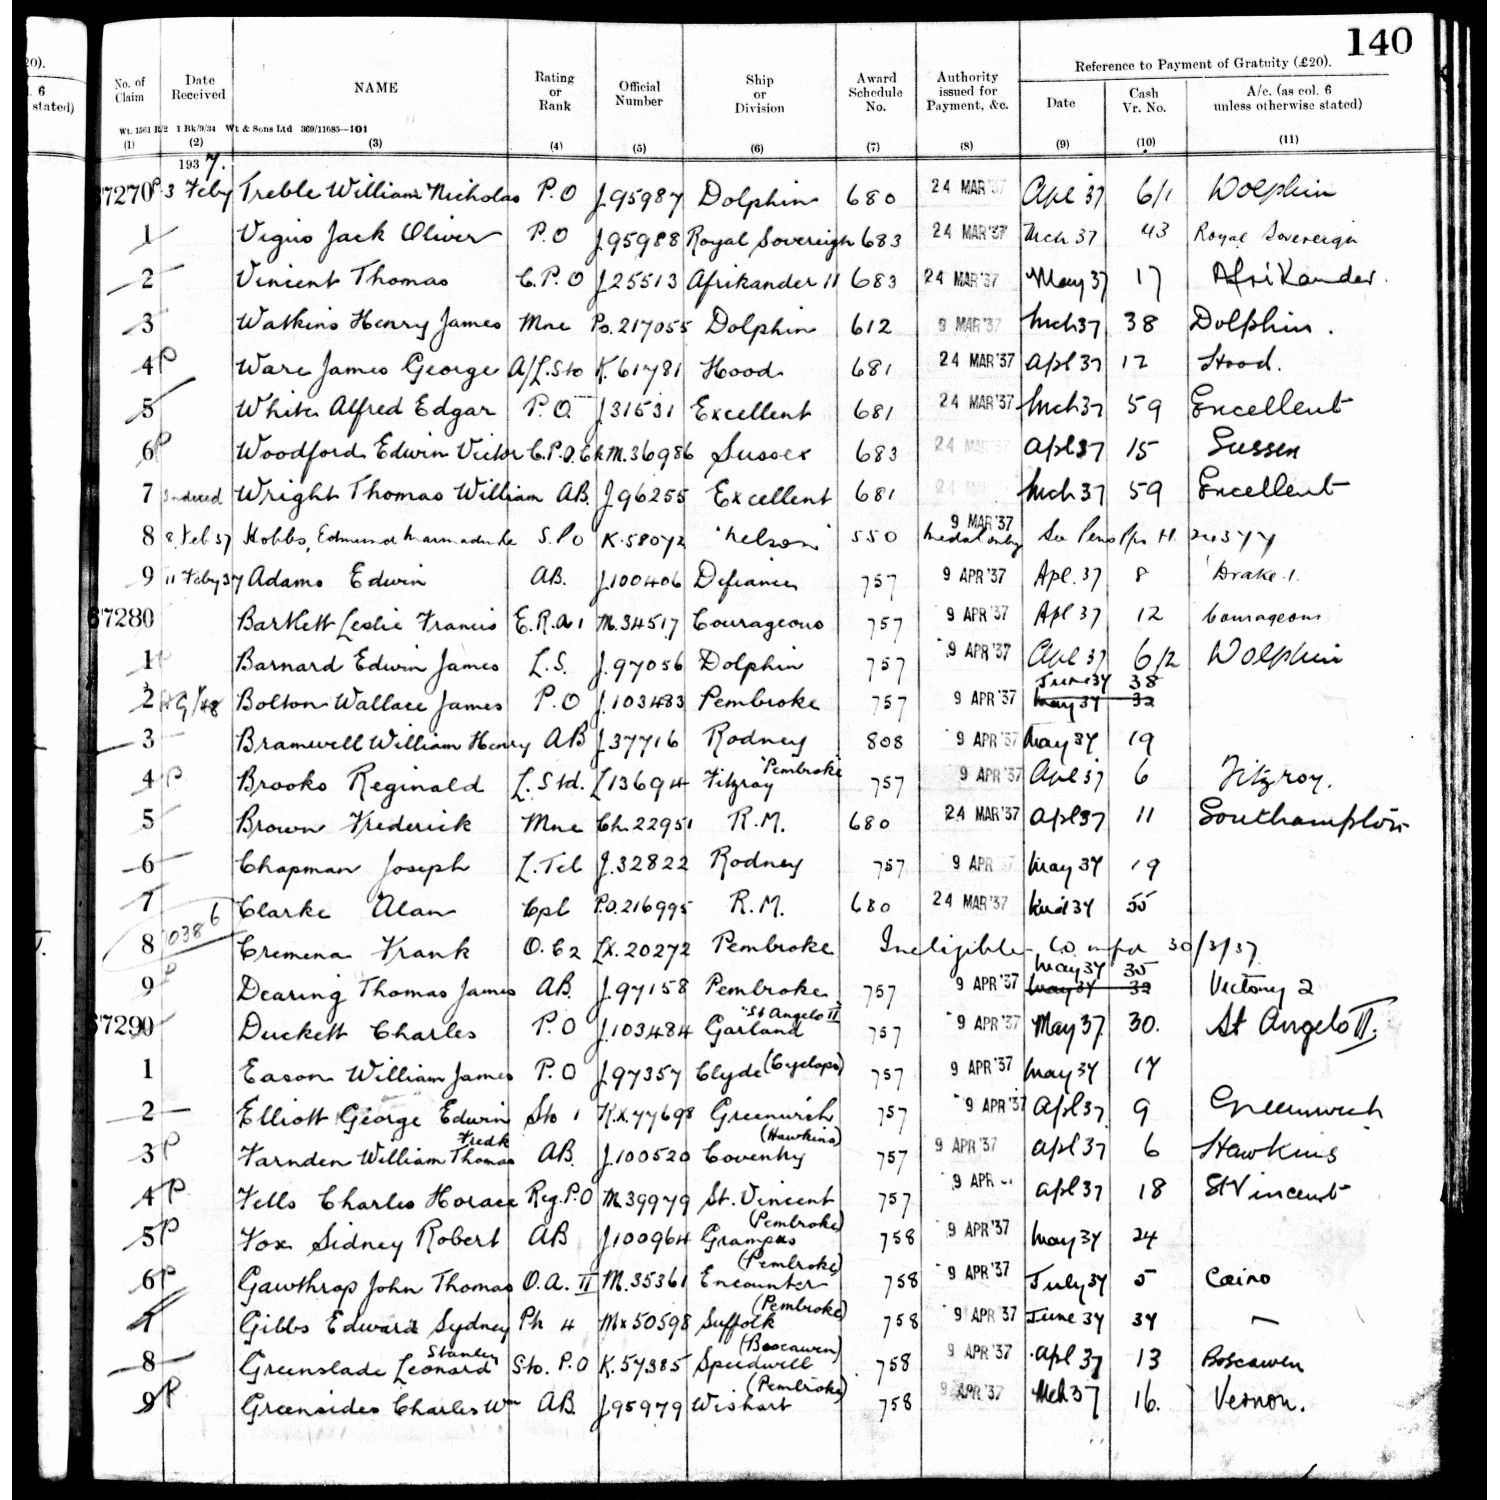 20).
l. 6
stated)
140
No. of Claim Date Received NAME Rating or Rank Official Number Ship or Division Award Schedule No. Authority issued for Payment, &c. Reference to Payment of Gratuity (£20).
Date Cash Vr. No. A/c. (as col. 6 unless otherwise stated)
Wt. 1561 B/2 1 Bk/9/34 Wt & Sons Ltd 369/11685—101
(1) (2) (3) (4) (5) (6) (7) (8) (9) (10) (11)
1937.
67270 P 3 Feby Treble William Nicholas P.O J.95987 Dolphin 680 24 MAR '37 Apl 37 6/1 Dolphin
1 Vigus Jack Oliver P.O J95988 Royal Sovereign 683 24 MAR '37 Mch 37 43 Royal Sovereign
2 Vincent Thomas C.P.O J25513 Afrikander II 683 24 MAR '37 May 37 17 Afrikander.
3 Watkins Henry James Mne Po.217055 Dolphin 612 9 MAR '37 Mch 37 38 Dolphin.
4 P Ware James George A/L.Sto K.61781 Hood 681 24 MAR '37 Apl 37 12 Hood.
5 White Alfred Edgar P.O. J31531 Excellent 681 24 MAR '37 Mch 37 59 Excellent
6 P Woodford Edwin Victor C.P.O.Ck M.36986 Sussex 683 24 MAR Apl 37 15 Sussex
7 Indexed Wright Thomas William AB. J.96255 Excellent 681 24 MAR Mch 37 59 Excellent
8 8. Feb 37 Hobbs, Edmund Marmaduke S.P.O K.58072 'Nelson' 550 9 MAR '37 Medal only See Pens Ppr H.
9 11 Feby 37 Adams Edwin AB. J.100406 Defiance 757 9 APR '37 Apl. 37 8 Drake 1.
67280 Bartlett Leslie Francis E.R.A 1 M.34517 Courageous 757 9 APR '37 Apl 37 12 Courageous
1 Barnard Edwin James L.S. J.97056 Dolphin 757 9 APR '37 Apl 37 6/2 Dolphin
June 37 38
2 Bolton Wallace James P.O J.103483 Pembroke 757 9 APR '37 May 37 32
3 Bramwell William Henry AB J37716 Rodney 808 9 APR '37 May 37 19
4 P Brooks Reginald L.Std. L13694 Fitzroy 'Pembroke 757 9 APR '37 Apl 37 6 Fitzroy.
5 Brown Frederick Mne Ch.22951 R.M. 680 24 MAR '37 Apl 37 11 Southampton
6 Chapman Joseph L.Tel J.32822 Rodney 757 9 APR May 37 19
7 Clarke Alan Cpl P.O.216995 R.M. 680 24 MAR '37 37 55
10386
8 Cremena Frank O.C2 LX.20272 Pembroke Ineligible - 30/3/37
May 37 35
9 P Dearing Thomas James AB. J.97158 Pembroke 757 9 APR '37 May 37 32 Victory 2
67290 Duckett Charles P.O J.103484 Garland "St Angelo II 757 9 APR '37 May 37 30. St Angelo II.
1 Eason William James P.O J.97357 Clyde (Cyclops) 757 9 APR '37 May 37 17
2 Elliott George Edwin Sto 1 K.X.77698 Greenwich 757 9 APR '37 Apl 37 9 Greenwich
3 P Farnden William Thomas Fredk AB. J.100520 Coventry (Hawkins) 757 9 APR '37 Apl 37 6 Hawkins
4 P Fells Charles Horace Reg.P.O M.39979 St. Vincent 757 9 APR Apl 37 18 St Vincent
5 P Fox Sidney Robert AB J100964 Grampus (Pembroke) 758 9 APR '37 May 37 24
6 P Gawthrop John Thomas O.A. II M.35361 Encounter (Pembroke) 758 9 APR '37 July 37 5 Cairo
7 Gibbs Edward Sydney Ph 4 Mx50598 Suffolk (Pembroke) 758 9 APR '37 June 37 37 —
8 Greenslade Leonard Stanley Sto. P.O K.57385 Speedwell (Boscawen) 758 9 APR '37 Apl 37 13 Boscawen
9 P Greensides Charles Wm AB. J.95979 Wishart (Pembroke) 758 9 APR '37 Mch 37 16. Vernon.